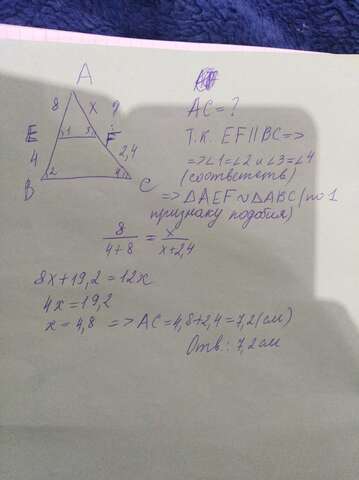 A
8 x ?
E 1 3 F
4 2,4
B 2 4 C
AC = ?
Т.К. EF||BC =>
=> ∠1=∠2 и ∠3=∠4
(соответств)
=> △AEF ∾ △ABC (по 1
признаку подобия)
8/(4+8) = x/(x+2,4)
8x+19,2=12x
4x=19,2
x=4,8 => AC=4,8+2,4=7,2(см)
Отв: 7,2 см